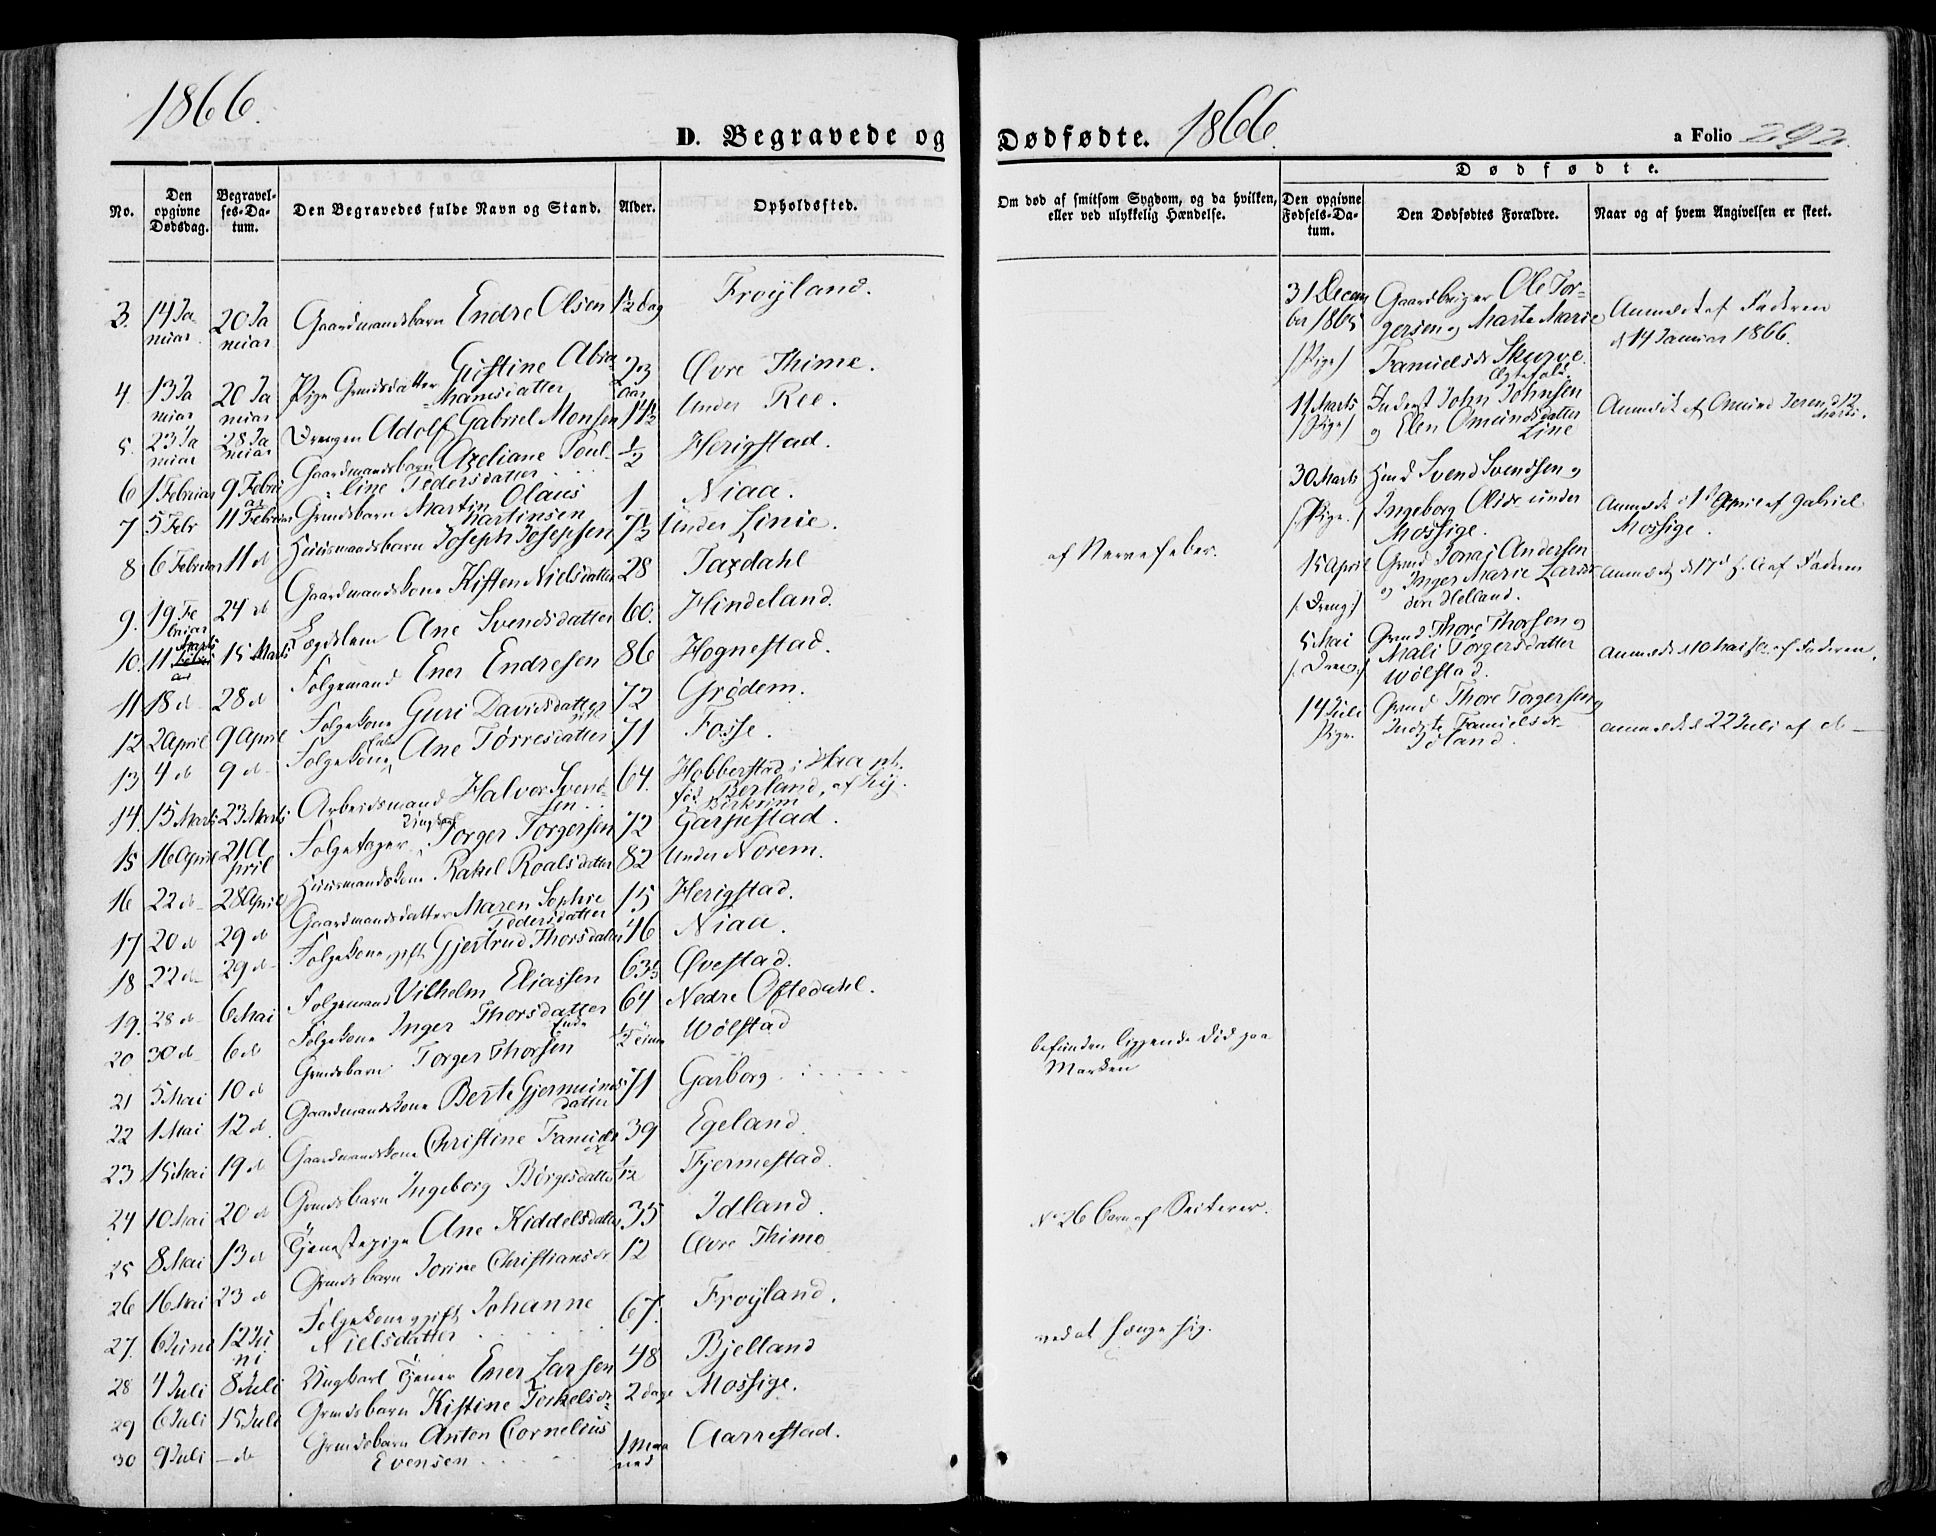 1866.
D. Begravede og
No.
Den opgivne Dødsdag.
Begravelses-Datum.
Den Begravedes fulde Navn og Stand.
Alder.
Opholdssted.
3. 14 Januar 20 Januar Gaardmandsbarn Endre Olsen 1½ Dag Frøyland.
4. 13 Januar 20 Januar Pige Grmdsdatter Gustine Abrahamsdatter 23 Aar Øvre Thime.
5. 23 Januar 28 Januar Drengen Adolf Gabriel Monsen 14½ Under Ree.
6 1 Februar 9 Februar Gaardmandsbarn Axeliane Pouline Pedersdatter ½ Herigstad.
7 5 Febr 11 Februar Grmdsbarn Martin Olaus Martinsen 1 Niaa.
8 6 Februar 11 d Huusmandsbarn Joseph Josephsen 7½ Under Linie.
9. 19 Februar 24 d Gaardmandskone Kisten Nielsdatter 28 Taxdahl
10. 11 Marts 15 Marts Lægdslem Ane Svendsdatter 60. Hindeland.
11 18 d 28 d Folgemand Ener Endresen 86 Hognestad.
12 2 April 9 April Folgekone Guri Davidsdatter 72 Grødem.
13 4 d 9 d Folgekone Ane Tørresdatter 71 Fosse.
14. 15 Marts 23 Marts Arbeidsmand Halvor Svendsen 64. Hobberstad i Haa
fød Berland, af
Birkrim
15 16 April 21 April Folgetager Torger Torgersen 72 Garpestad.
16 22 d 28 April Huusmandskone Rakel Roalsdatter 82 Under Norem.
17 20 d 29 d Gaardmandsdatter Maren Sophie Pedersdatter 15 Herigstad.
18 22 d 29 d Folgekone gift Gjertrud Thorsdatter 46 Niaa.
19. 28 d 6 Mai Folgemand Vilhelm Eliassen 63½ Qvestad.
20 30 d 6 d Folgekone Inger Thorsdatter 64 Nedre Oftedahl.
21 5 Mai 10 d Grmdsbarn Torger Thorsen ½ Time Wølstad
22 1 Mai 12 d. Gaardmandskone Berte Gjermundsdatter 71 Garborg
23 15 Mai 19 d Gaardmandskone Christine 39 Egeland
24 10 Mai 20 d Grmdsbarn Ingeborg Børgesdatter 1/12 Fjermestad.
25 8 Mai 13 d Tjenestepige Ane Kiddelsdatter 35 Idland.
26 16 Mai 23 d Grmdsbarn Jorine Christiansdr 12 Øvre Thime
27. 6 Juni 12 Juni Folgekone gift Johanne Nielsdatter 67. Frøyland.
28 4 Juli 8 Juli Ungkarl Tjener Ener Larsen 48 Bjelland
29 6 Juli 15 Juli Grmdsbarn Kistine Torkelsdr 2 dage Mossige.
30 9 Juli — do Grmdsbarn Anton Cornelius Evensen 1 Maaned Aarrestad.
Dødfødte. 1866.
a Folio 292.
Om død af smitsom Sygdom, og da hvilken, eller ved ulykkelig Hændelse.
Dødfødte.
Den opgivne Fødsels-Datum.
Den Dødfødtes Forældre.
Naar og af hvem Angivelsen er skeet.
af Nervefeber.
befunden liggende død paa Marken
No 26 Barn af Seiterer.
ved at hænge sig.
31 December 1865 /Pige/ Gaardbruger Ole Torgersen og Marte Marie Samuelsdr Skurve. Ægtefolk. Anmeldt af Faderen d 14 Januar 1866.
11 Marts /Pige/ Inderst John Johnsen og Elen Omundsdatter Line Anmeldt af Omund Jeren, d 12 Marts.
30 Marts /:Pige:/ Hmd Svend Svendsen og Ingeborg Olsdr under Mossige. Anmeldt i 1st April af Gabriel Mossige.
15 April /:Dreng:/ Grmd Jonas Andersen og Inger Marie Larsdr Helland. anmeldt d 17d af Faderen
5 Mai /:Dreng:/ Grmd Thore Thorsen og Mali Torgersdatter Wølstad. anmeldt 10 Mai af Faderen.
14 Juli Pige. Grmd Thore Torgersen og Samuelsdr Idland. anmeldt d 22 Juli af do